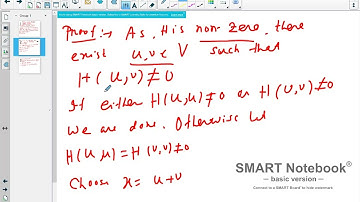 Proof :- As, H is non-zero, there
exist u, v ∈ V such that
H(u, v) ≠ 0
If either H(u, u) ≠ 0 or H(v, v) ≠ 0
We are done. Otherwise let
H(u, u) = H(v, v) ≠ 0
Choose x = u+v
SMART Notebook®
– basic version –
Connect to a SMART Board® to hide watermark